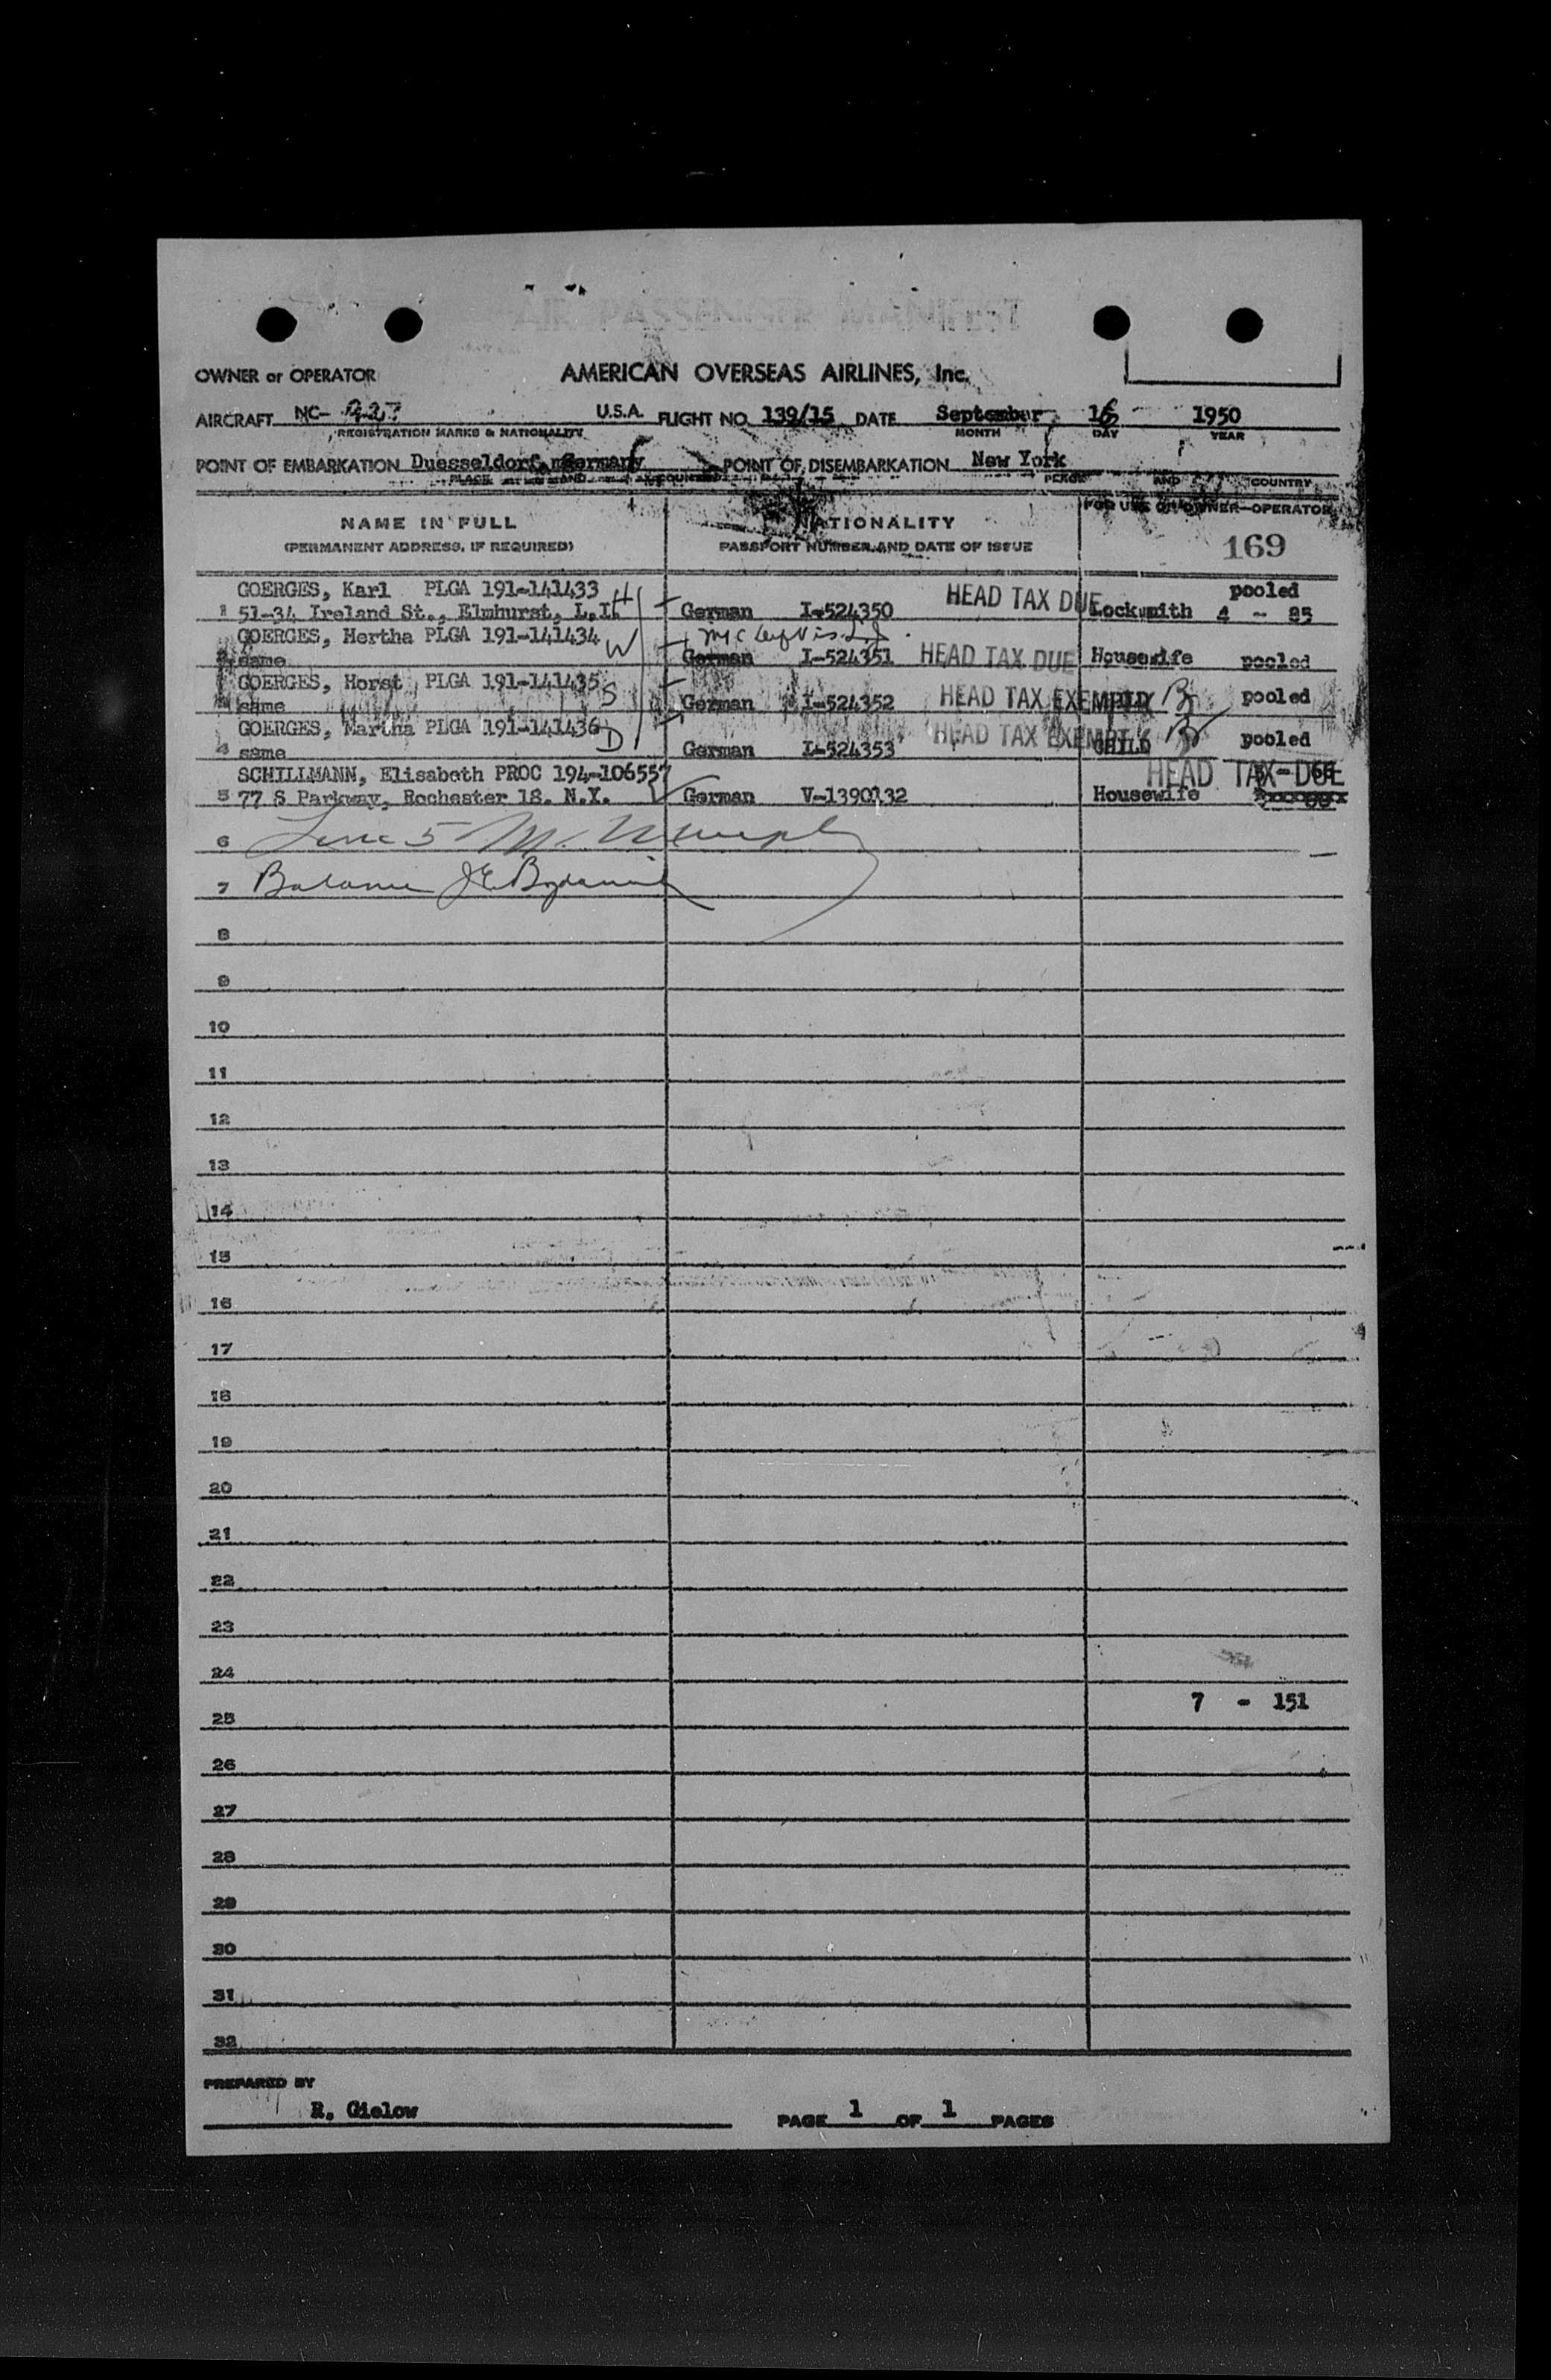 AIR PASSENGER MANIFEST
OWNER or OPERATOR AMERICAN OVERSEAS AIRLINES, Inc.
AIRCRAFT NC- U.S.A. FLIGHT NO. 139/15 DATE September 1950
REGISTRATION MARKS & NATIONALITY MONTH DAY YEAR
POINT OF EMBARKATION Duesseldorf, Germany POINT OF DISEMBARKATION New York
PLACE AND COUNTRY PLACE AND COUNTRY
NAME IN FULL NATIONALITY FOR USE OF OWNER-OPERATOR
(PERMANENT ADDRESS, IF REQUIRED) PASSPORT NUMBER AND DATE OF ISSUE 169
GOERGES, Karl PLGA 191-141433 H HEAD TAX DUE pooled
1 51-34 Ireland St., Elmhurst, L.I. German I-524350 Locksmith 4 - 85
GOERGES, Hertha PLGA 191-141434 W
2 same German I-524351 HEAD TAX DUE Housewife pooled
GOERGES, Horst PLGA 191-141435 S
3 same German I-524352 HEAD TAX EXEMPT pooled
GOERGES, Martha PLGA 191-141436 D HEAD TAX EXEMPT
4 same German I-524353 CHILD pooled
SCHILLMANN, Elisabeth PROC 194-106557 HEAD TAX DUE
5 77 S Parkway, Rochester 18. N.Y. German V-1390132 Housewife
6 Line 5 M.
7 Balance J E
8
9
10
11
12
13
14
15
16
17
18
19
20
21
22
23
24
7 - 151
25
26
27
28
29
30
31
32
PREPARED BY
R. Gielow PAGE 1 OF 1 PAGES